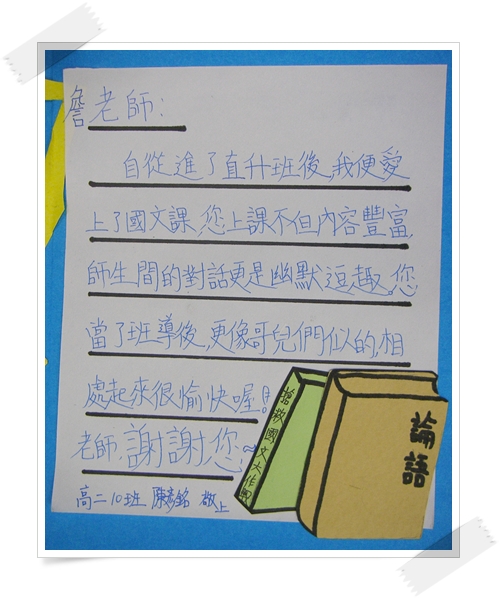 詹老師:
自從進了直升班後,我便愛
上了國文課,您上課不但內容豐富,
師生間的對話更是幽默逗趣。您
當了班導後,更像哥兒們似的,相
處起來很愉快喔!
老師,謝謝您~
高二10班 陳彥銘 敬上
搶救國文大作戰
論語